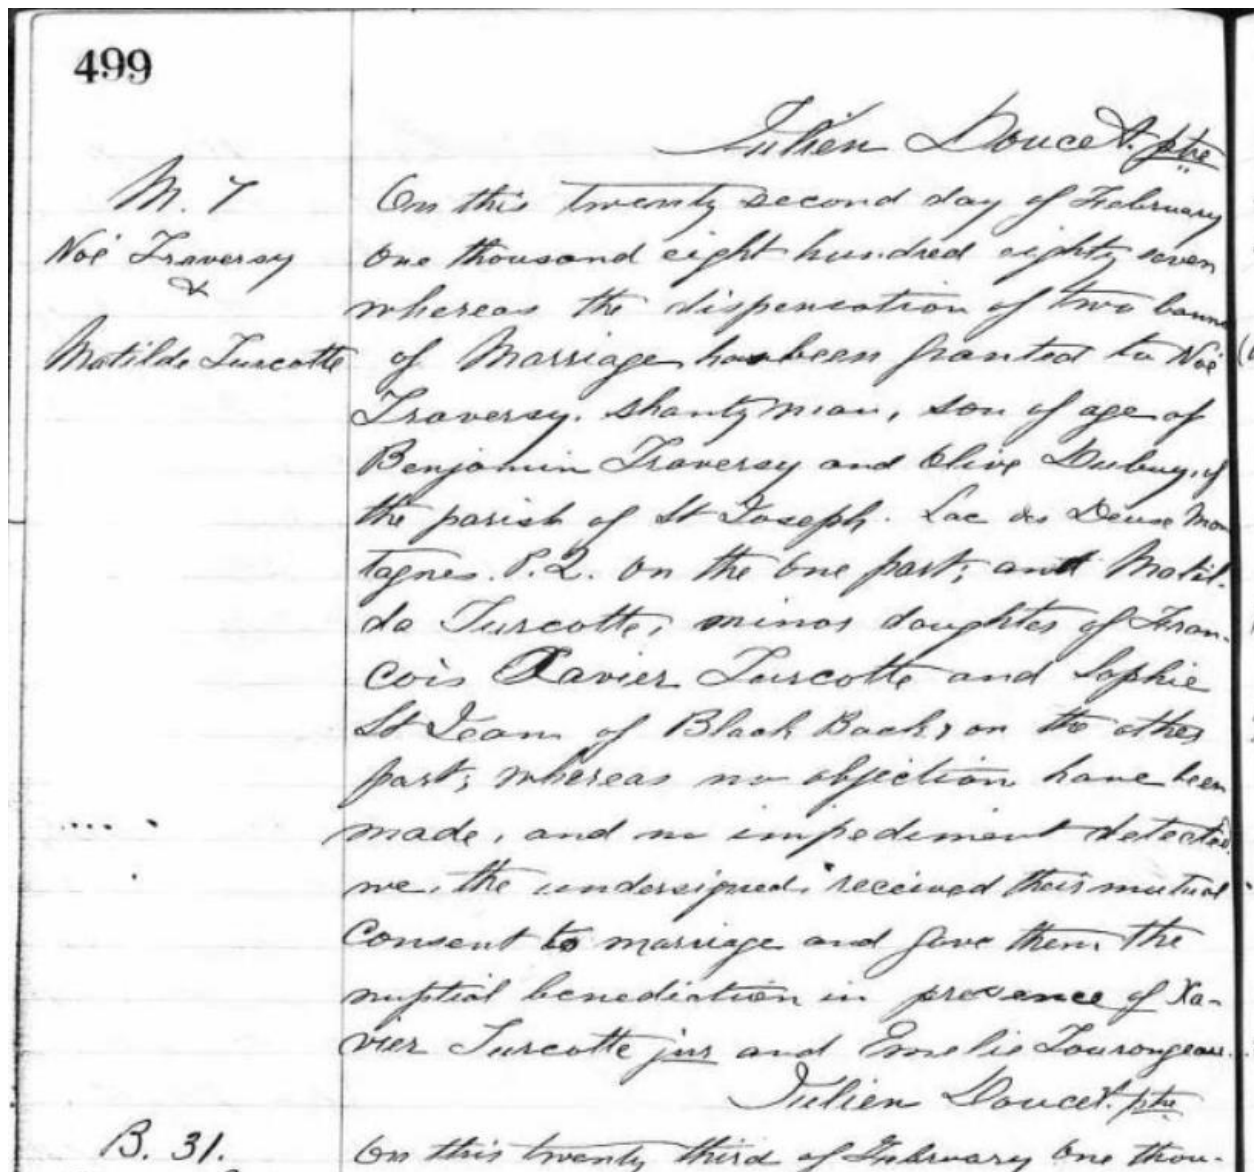 499
Julien Doucet. ptre
M. 7
Noé Traversy
&
Matilde Turcotte
On this twenty second day of February
one thousand eight hundred eighty seven
whereas the dispensation of two banns
of Marriage has been granted to Noé
Traversy. Shantyman, son of age of
Benjamin Traversy and Olive Dubuy, of
the parish of St Joseph. Lac des Deux Mon
tagnes. P.Q. on the one part; and Matil-
da Turcotte, minor daughter of Fran-
cois Xavier Turcotte and Sophie
St Jean of Black Back, on the other
part; whereas no objection have been
made, and no impediment detected
we, the undersigned, received their mutual
Consent to marriage and gave them the
nuptial benediction in presence of Xa-
vier Turcotte jnr and Emelie Tourongeau.
Julien Doucet. ptre
B. 31.
On this twenty third of February One thou-